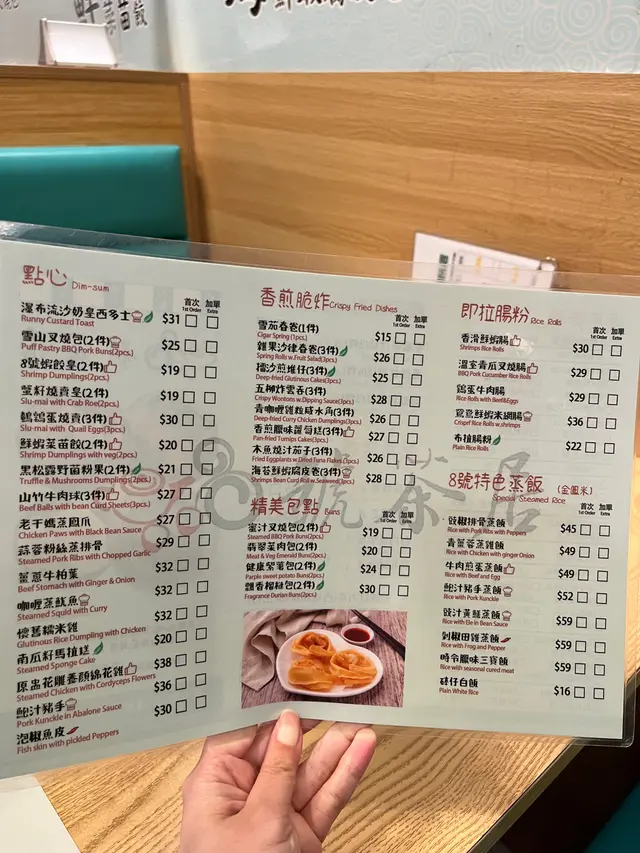 點心 Dim-sum
首次 1st Order 加單 Extra
瀑布流沙奶皇西多士 $31
Runny Custard Toast
雪山叉燒包(2件) $25
Puff Pastry BBQ Pork Buns(2pcs.)
8號蝦餃皇(2件) $19
Shrimp Dumplings(2pcs.)
蟹籽燒賣皇(2件) $19
Slu-mai with Crab Roe(2pcs.)
鵪鶉蛋燒賣(3件) $30
Slu-mai with Quail Eggs(3pcs.)
鮮蝦菜苗餃(2件) $20
Shrimp Dumplings with veg(2pcs.)
黑松露野苗粉果(2件) $21
Truffle & Mushrooms Dumplings(2pcs.)
山竹牛肉球(3件) $27
Beef Balls with bean Curd Sheets(3pcs.)
老干媽蒸鳳爪 $27
Chicken Paws with Black Bean Sauce
蒜蓉粉絲蒸排骨 $29
Steamed Pork Ribs with Chopped Garlic
薑蔥牛柏葉 $32
Beef Stomach with Ginger & Onion
咖喱蒸魷魚 $32
Steamed Squid with Curry
懷舊糯米雞 $32
Glutinous Rice Dumpling with Chicken
南瓜籽馬拉糕 $20
Steamed Sponge Cake
原盅花雕養顏綿花雞 $38
Steamed Chicken with Cordyceps Flowers
鮑汁豬手 $36
Pork Kunckle in Abalone Sauce
泡椒魚皮 $30
Fish skin with pickled Peppers
香煎脆炸 Crispy Fried Dishes
首次 1st Order 加單 Extra
雪茄春卷(1件) $15
Cigar Spring(1pcs.)
雜果沙律春卷(3件) $26
Spring Rolls w.Fruit Salad(3pcs.)
擂沙煎堆仔(3件) $25
Deep-fried Glutinous Cakes(3pcs.)
五柳炸雲吞(3件) $28
Crispy Wontons w.Dipping Sauce(3pcs.)
青咖喱雞粒咸水角(3件) $26
Deep-fried Curry Chicken Dumplings(3pcs.)
香煎臘味蘿蔔糕(3件) $27
Pan-fried Turnips Cakes(3pcs.)
木魚燒汁茄子(3件) $26
Fried Eggplants w.Dried Tuna Flakes (3pcs.)
海苔鮮蝦腐皮卷(3件) $28
Shrimps Bean Curd Roll w.Seaweed(3pcs.)
精美包點 Buns
首次 1st Order 加單 Extra
蜜汁叉燒包(2件) $19
Steamed BBQ Pork Buns(2pcs.)
翡翠菜肉包(2件) $20
Meat & Veg Emerald Buns(2pcs.)
健康紫薯包(2件) $24
Parple sweet potato Buns(2pcs.)
飄香榴槤包(2件) $30
Fragrance Durian Buns(2pcs.)
即拉腸粉 Rice Rolls
首次 1st Order 加單 Extra
香滑鮮蝦腸 $30
Shrimps Rice Rolls
溫室青瓜叉燒腸 $29
BBQ Pork Cucumber Rice Rolls
鷄蛋牛肉腸 $29
Rice Rolls with Beef&Eggs
鴛鴦鮮蝦米網腸 $36
Crispt Rice Rolls w.shrimps
布拉腸粉 $22
Plain Rice Rolls
8號特色蒸飯 (金鳳米)
Special Steamed Rice
首次 1st Order 加單 Extra
豉椒排骨蒸飯 $45
Rice with Pork Ribs with Peppers
青薑蓉蒸雞飯 $49
Rice with Chicken with ginger Onion
牛肉煎蛋蒸飯 $49
Rice with Beef and Egg
鮑汁豬手蒸飯 $52
Rice with Pork Kunckle
豉汁黃鱔蒸飯 $59
Rice with Ele in Bean Sauce
剁椒田雞蒸飯 $59
Rice with Frog and Pepper
時令臘味三寶飯 $59
Rice with seasonal cured meat
砵仔白飯 $16
Plain White Rice
8號茶居